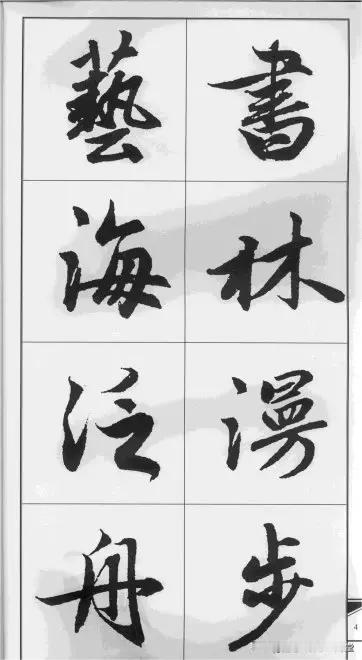 書林漫步
藝海泛舟
4